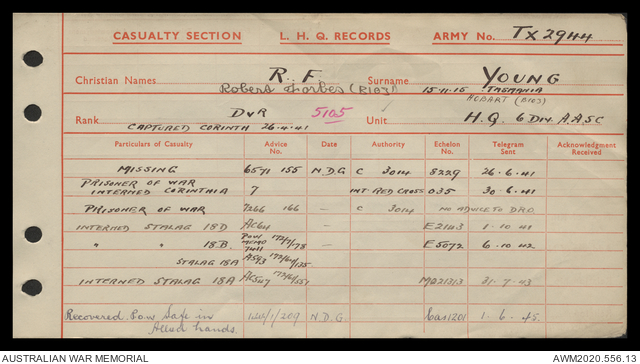 CASUALTY SECTION L. H. Q. RECORDS ARMY No. TX 2944
Christian Names R. F. Surname YOUNG
Robert Forbes (B103) 15-11-15 TASMANIA
HOBART (B103)
Rank DVR 5105 Unit H.Q. 6 DIV. AASC
CAPTURED CORINTH 26-4-41
Particulars of Casualty Advice No. Date Authority Echelon No. Telegram Sent Acknowledgment Received
MISSING 6571 155 N.D.G C 3014 8229 26.6.41
PRISONER OF WAR
INTERNED CORINTHIA 7 INT RED CROSS 035 30.6.41
PRISONER OF WAR 7266 166 — C 3014 NO ADVICE TO D.R.O.
INTERNED STALAG 18D AC64 — E2143 1.10.41
" " 18.B. POW MEMO 7411 172/7/78 — E5072 6.10.42
STALAG 18A A593
INTERNED STALAG 18A AK547 M221313 31.7.43
Recovered P.o.w Safe in
Allied hands. 120/1/209 N.D.G. Cas1201 1.6.45.
AUSTRALIAN WAR MEMORIAL AWM2020.556.13